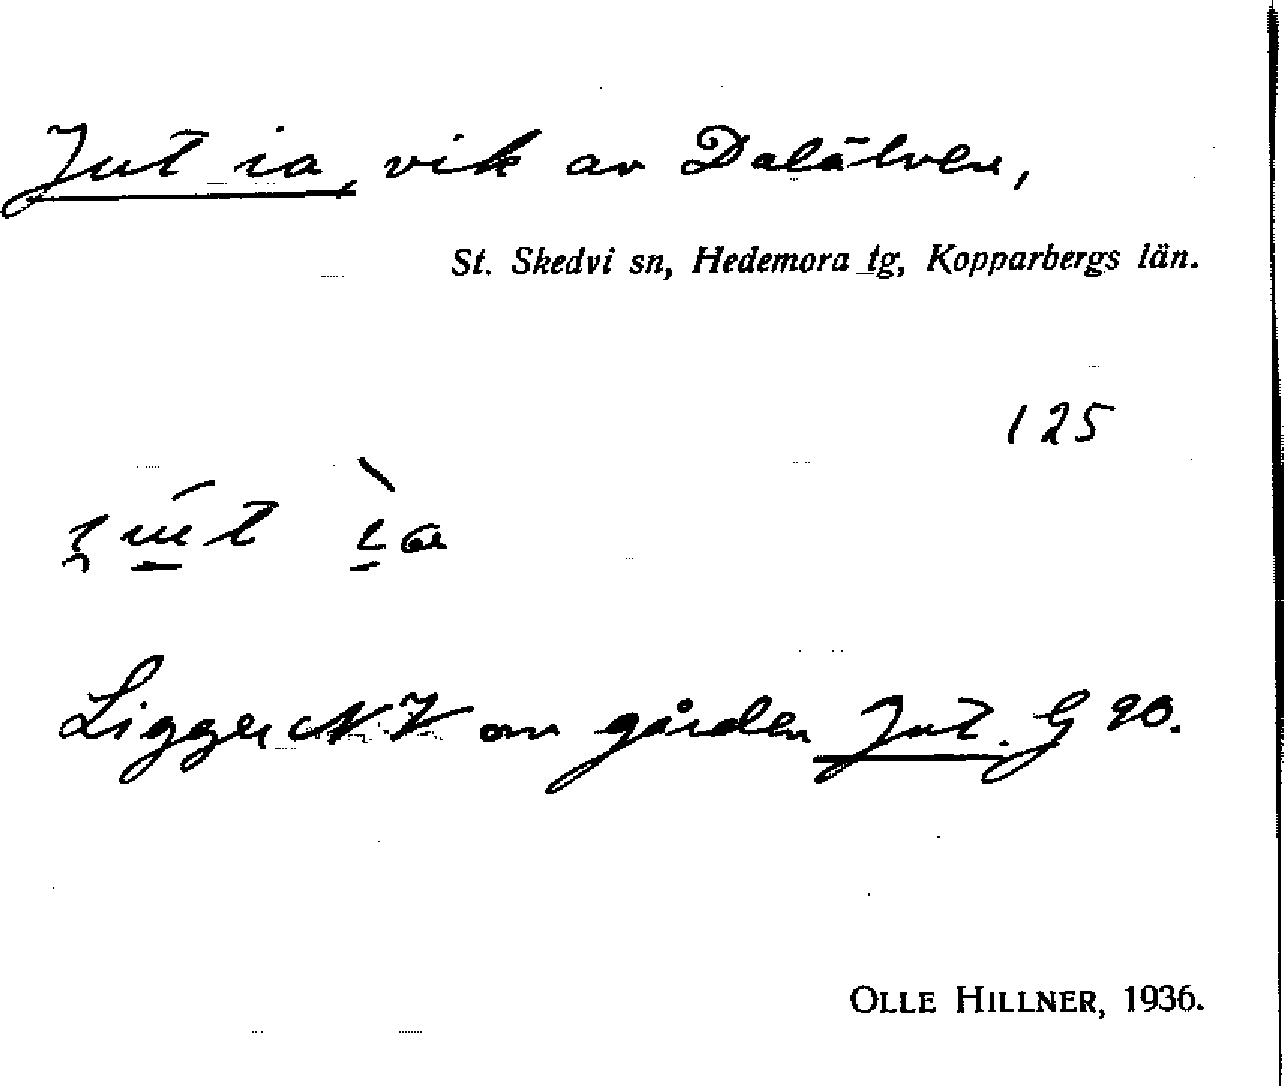 Jut ia, vik av Dalälven,
St. Skedvi sn, Hedemora tg, Kopparbergs län.
125
Ligger NV om gården Jut. G 90.
OLLE HILLNER, 1936.